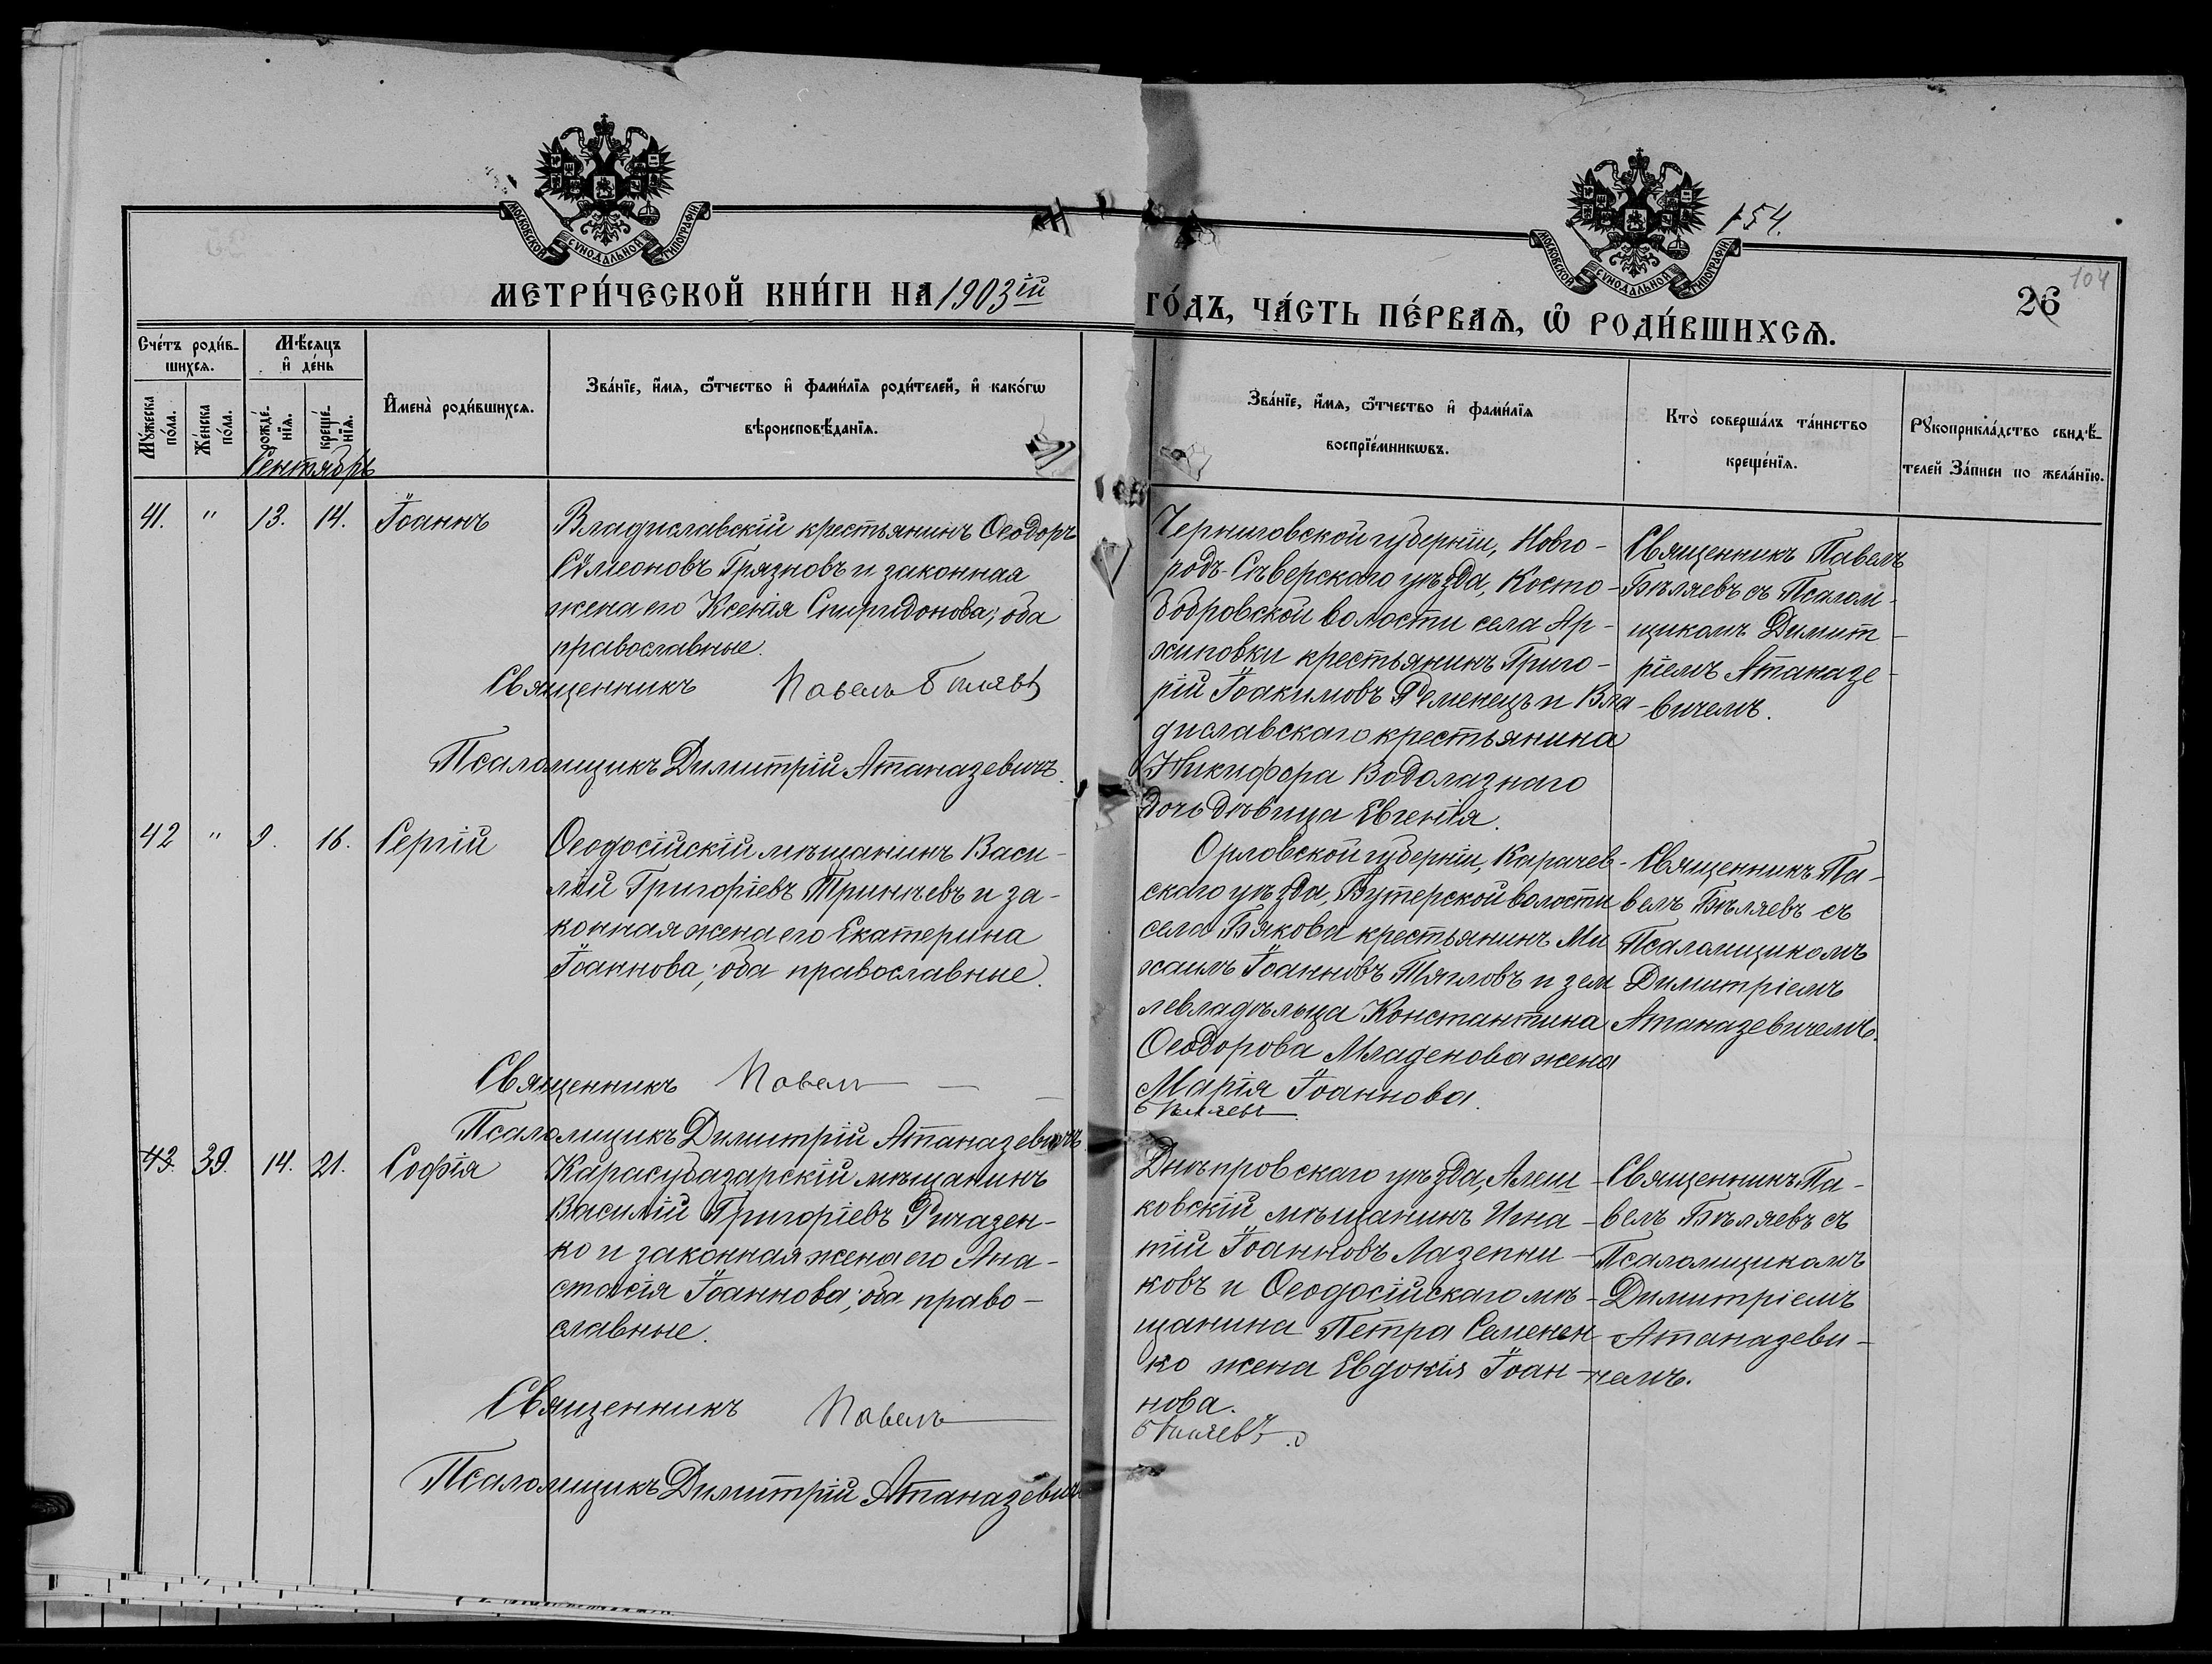 МОСКОВСКОЙ СѴНОДАЛЬНОЙ ТИПОГРАФІИ
МОСКОВСКОЙ СѴНОДАЛЬНОЙ ТИПОГРАФІИ
154.
104
26
МЕТРИ́ЧЕСКОЙ КНИ́ГИ НА 1903ій ГО́ДЪ, ЧА́СТЬ ПЕ́РВАѦ, Ѿ РОДИ́ВШИХСѦ.
Сче́тъ роди́в-
шихсѧ.
Мѣ́сѧцъ
и҆ де́нь
Мꙋ́жеска
по́ла.
Же́нска
по́ла.
рожде́-
нїѧ.
креще́-
нїѧ.
И҆мена̀ роди́вшихсѧ.
Зва́нїе, и҆́мѧ, ѻ҆́тчество и҆ фами́лїѧ роди́телей, и҆ како́гѡ
вѣроисповѣ́данїѧ.
Зва́нїе, и҆́мѧ, ѻ҆́тчество и҆ фами́лїѧ
воспрїе́мникѡвъ.
Кто̀ соверша́лъ та́инство
креще́нїѧ.
Рꙋкоприкла́дство свидѣ́-
телей за́писи по жела́нїю.
Сентябрь
41. " 13. 14. Іоаннъ
Владиславскій крестьянинъ Ѳеодоръ
Сѵмеоновъ Грязновъ и законная
жена его Ксенія Спиридонова; оба
православные.
Священникъ Павелъ Бѣляевъ
Псаломщикъ Димитрій Атаназевичъ.
Черниговской губерніи, Новго-
родъ-Сѣверскаго уѣзда, Косто-
бобровской волости села Ар-
хиповки крестьянинъ Григо-
рій Іоакимовъ Ременецъ и Вла-
диславскаго крестьянина
Никифора Водолазнаго
дочь дѣвица Евгенія.
Священникъ Павелъ
Бѣляевъ съ Псалом-
щикомъ Димит-
ріемъ Атаназе-
вичемъ.
42 " 9. 16. Сергій
Ѳеодосійскій мѣщанинъ Васи-
лій Григоріевъ Тринчевъ и за-
конная жена его Екатерина
Іоаннова; оба православные.
Священникъ Павелъ
Псаломщикъ Димитрій Атаназевичъ
Орловской губерніи, Карачев-
скаго уѣзда, Бутерской волости
села Бякова крестьянинъ Ми
хаилъ Іоанновъ Тягловъ и зем
левладѣльца Константина
Ѳеодорова Младенова жена
Марія Іоаннова.
Бѣляевъ
Священникъ Па-
велъ Бѣляевъ съ
Псаломщикомъ
Димитріемъ
Атаназевичемъ.
43. 39. 14. 21. Софія
Карасубазарскій мѣщанинъ
Василій Григоріевъ
ко и законная жена его Ана-
стасія Іоаннова; оба право-
славные.
Священникъ Павелъ
Псаломщикъ Димитрій Атаназевичъ
Днѣпровскаго уѣзда, Алеш-
ковскій мѣщанинъ Игна-
тій Іоанновъ Лазепни-
ковъ и Ѳеодосійскаго мѣ-
щанина Петра Семенен
ко жена Евдокія Іоан-
нова.
Бѣляевъ
Священникъ Па-
велъ Бѣляевъ съ
Псаломщикомъ
Димитріемъ
Атаназеви-
чемъ.